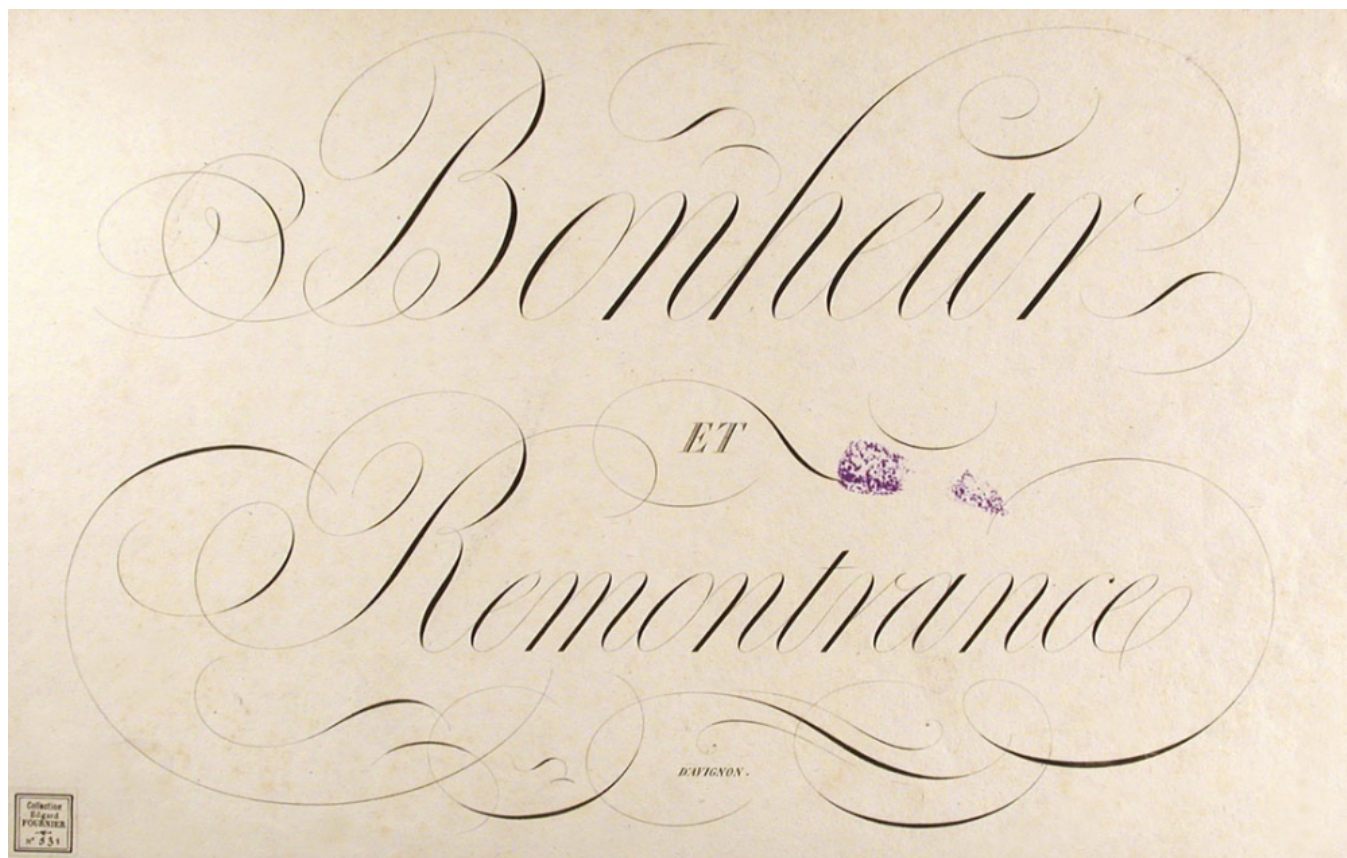 Bonheur
ET
Remontrance
D'AVIGNON.
Collection
Edgard
FOURNIER
N° 531